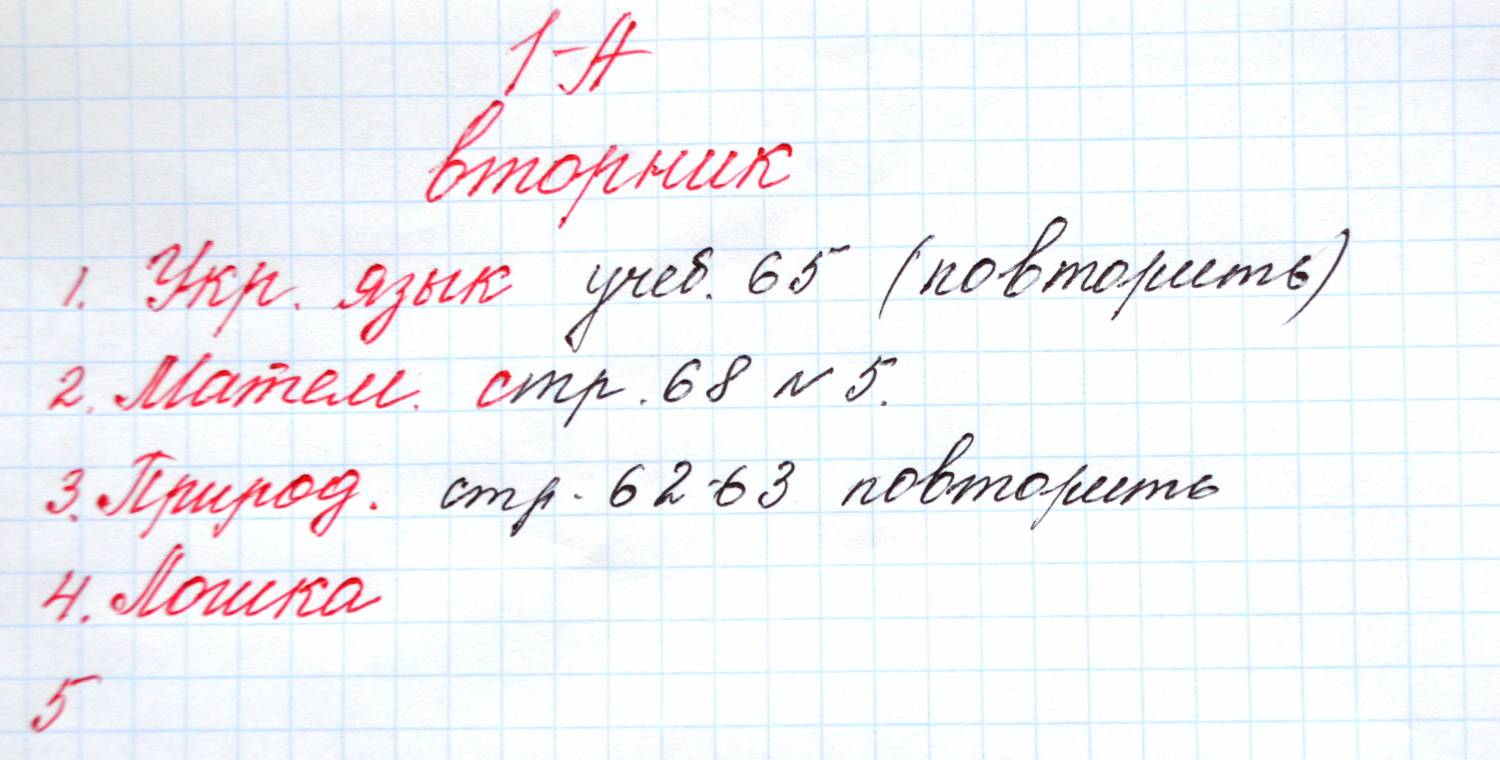 1-А
вторник
1. Укр. язык учеб. 65 (повторить)
2. Матем. стр. 68 № 5.
3. Природ. стр. 62-63 повторить
4. Лошка
5